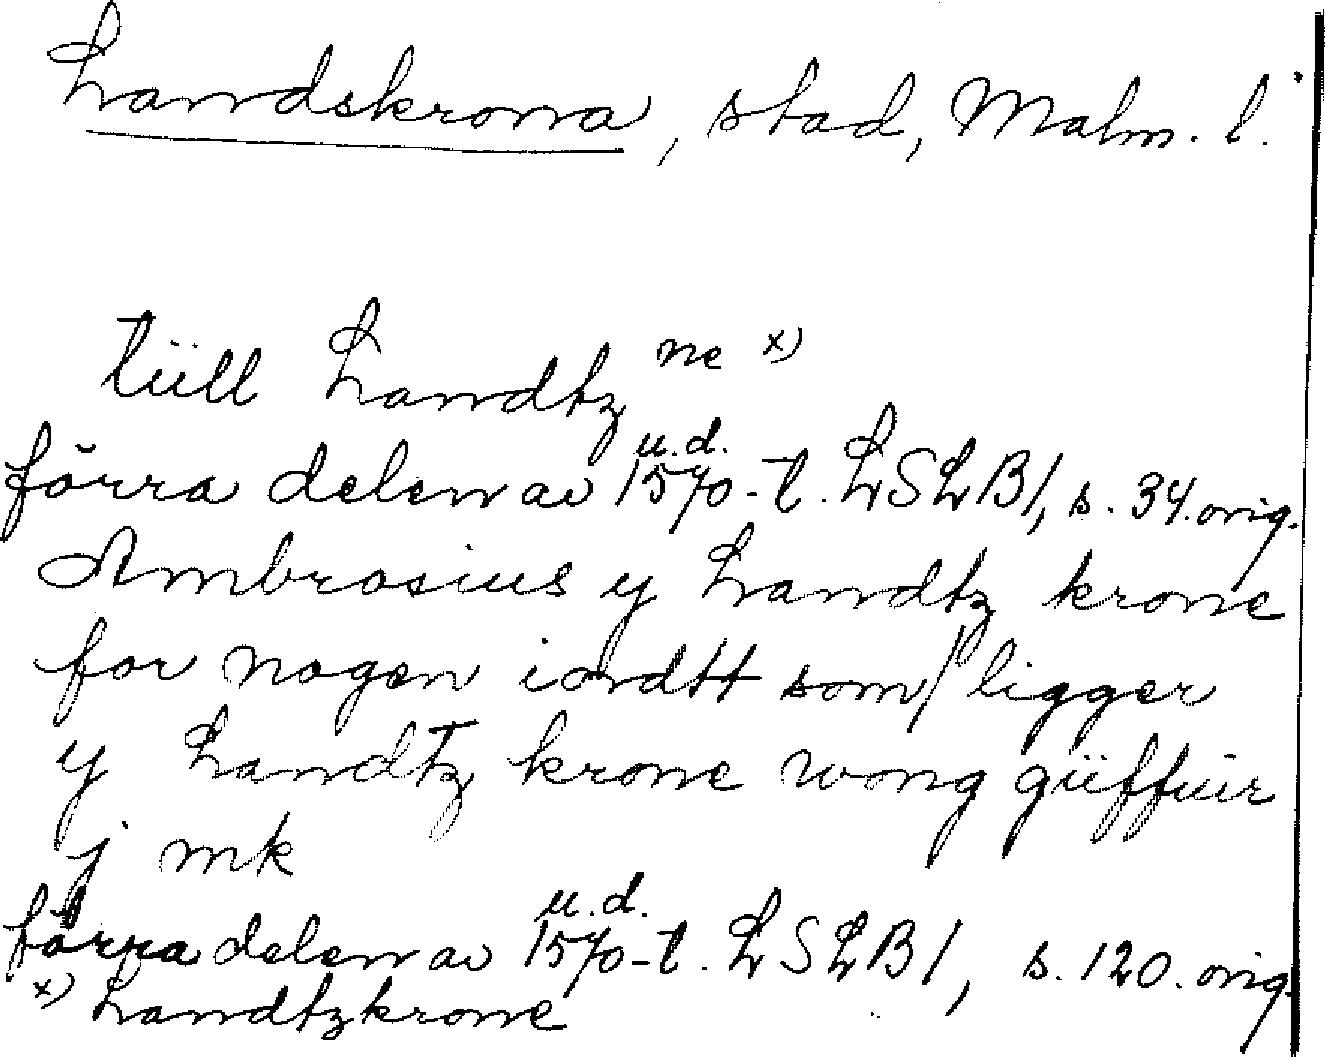 Landskrona, stad, Malm. l.
tüll Landtz ne x)
u.d.
förra delen av 1570-t. LSLB 1, s. 34. orig.
Ambrosius y Landtz krone
for nogen iordtt som / ligger
y Landtz krone wong güffuir
j mk
u.d.
förra delen av 1570-t. LSLB 1, s. 120. orig.
x) Landtzkrone